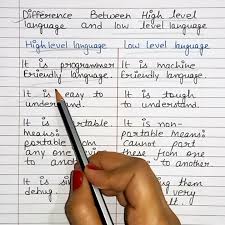 Difference Between High level
language and low level language
High level language Low level language
It is programmer It is machine
Friendly language. Friendly language
It is easy to It is tough
understand. to understand.
It is portable. It is non-
means: portable Means:
portable from cannot port
any one these from one
to another. to another.
It is
debug.